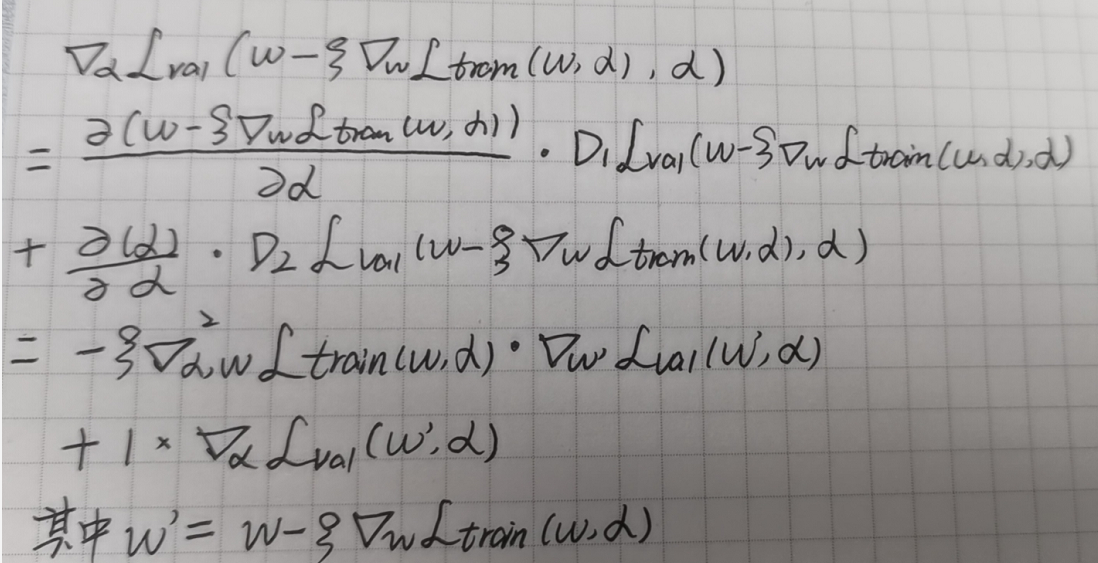 ∇α ℒval (w-ξ ∇w ℒtrain (w, α), α)
= ∂(w-ξ ∇w ℒtrain (w, α)) / ∂α · D₁ ℒval (w-ξ ∇w ℒtrain (w, α), α)
+ ∂(α) / ∂α · D₂ ℒval (w-ξ ∇w ℒtrain (w, α), α)
= -ξ ∇²α,w ℒtrain (w, α) · ∇w' ℒval (w', α)
+ 1 × ∇α ℒval (w', α)
其中 w' = w-ξ ∇w ℒtrain (w, α)